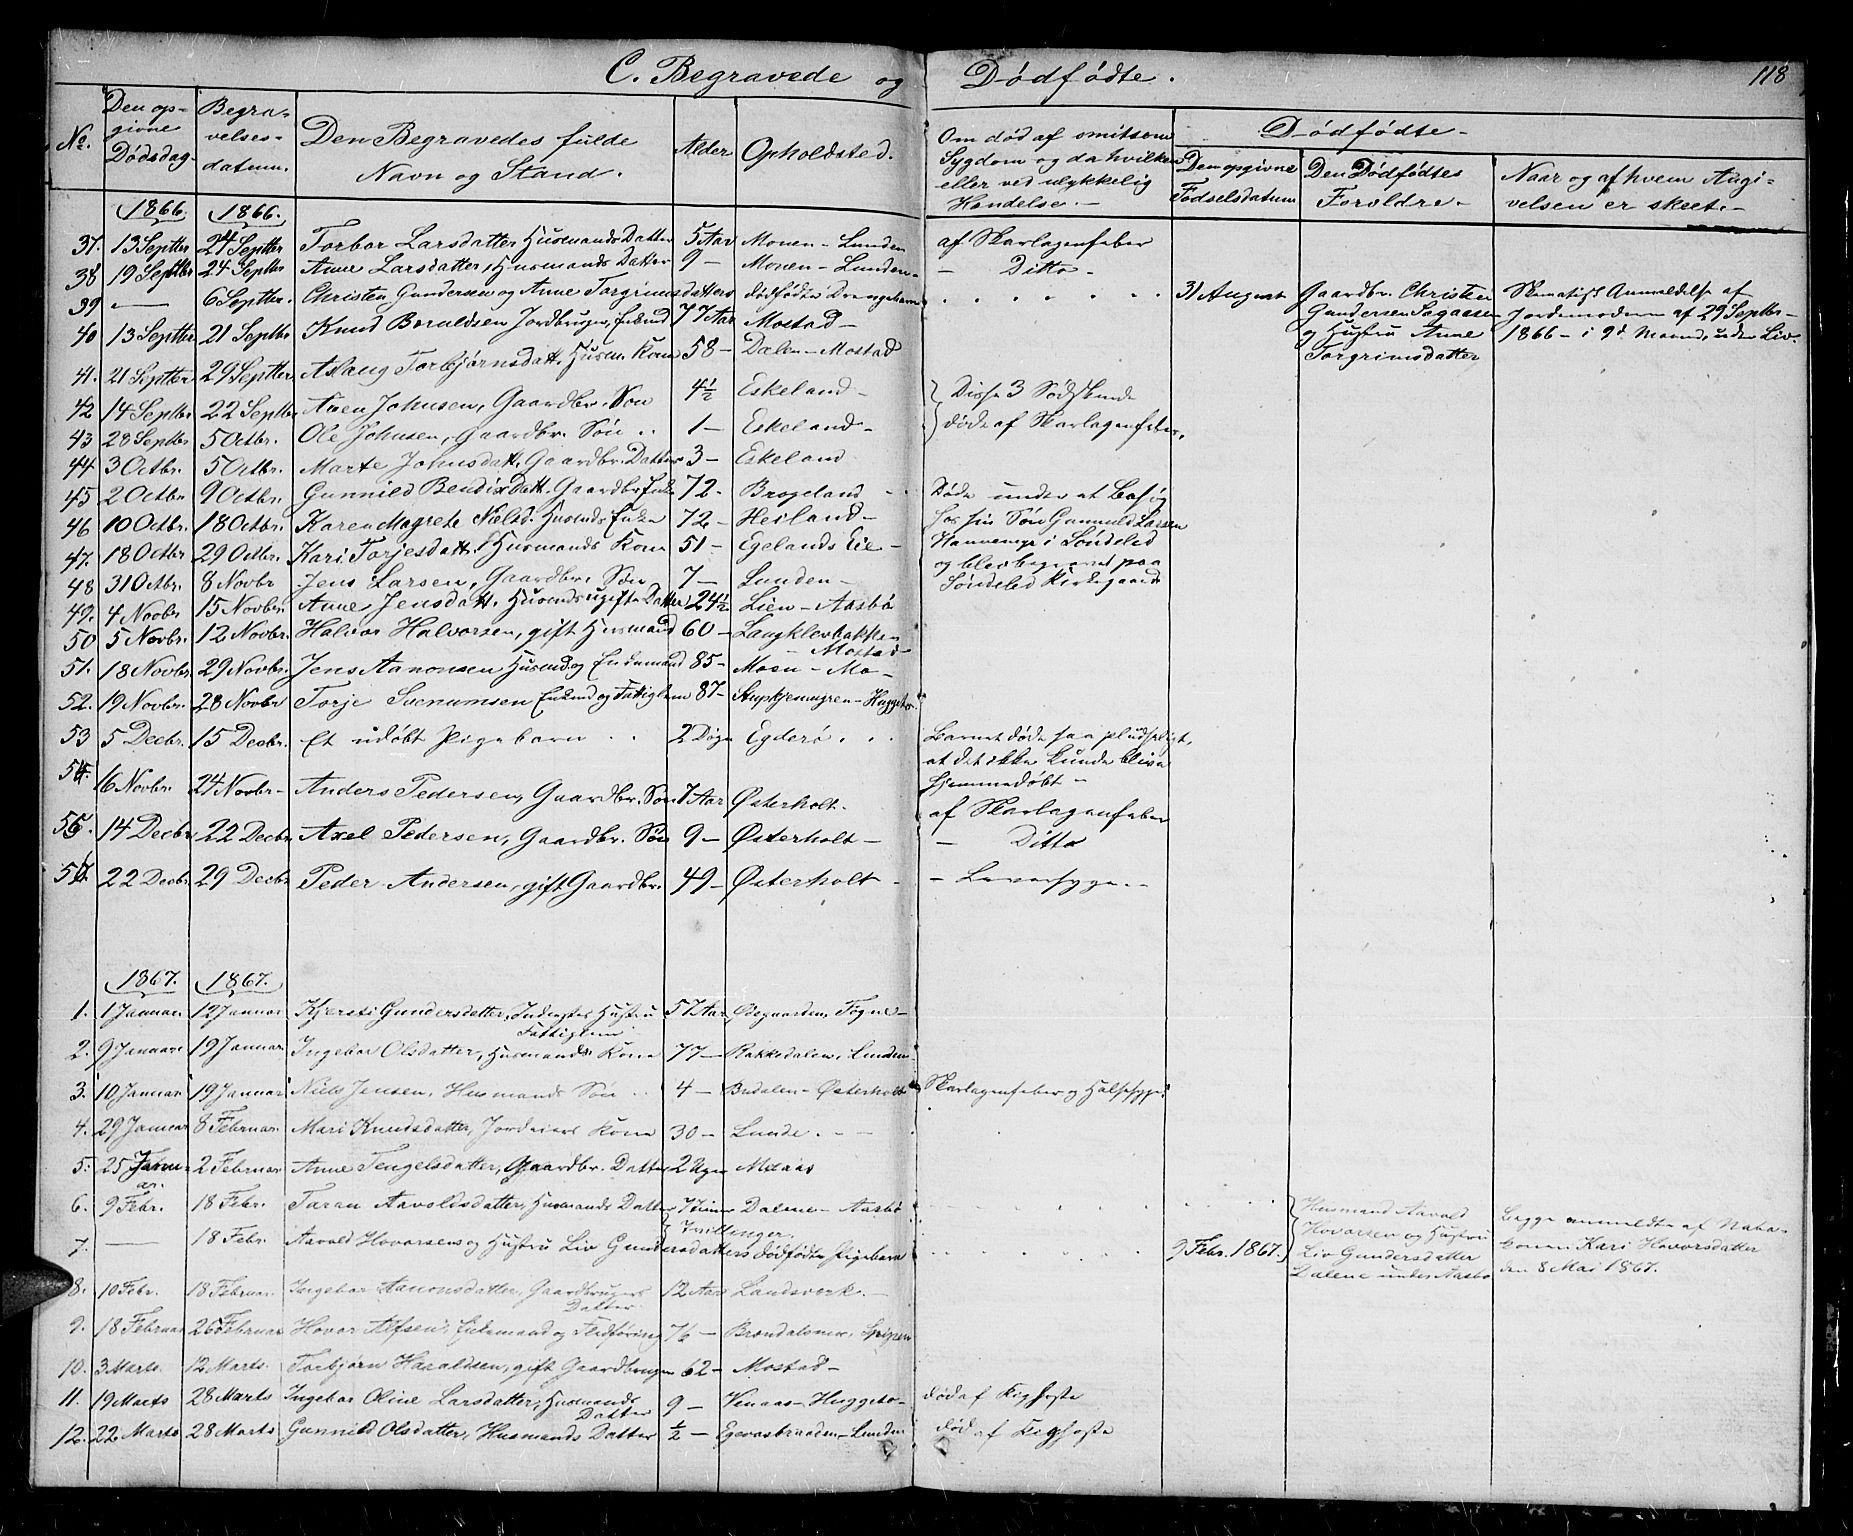 C. Begravede og Dødfødte.
118
No. Den opgivne Dødsdag Begravelsesdatum. Den Begravedes fulde Navn og Stand. Alder Opholdsted. Om død af smitsom Sygdom og da hvilken eller ved ulykkelig Hændelse.— Dødfødte— Den opgivne Fødselsdatum Den Dødfødtes Forældre.— Naar og af hvem Angivelsen er skeet.—
1866. 1866.
37. 13 Septbr 24 Septbr Torbor Larsdatter Husmands Datter 5 Aar Monen – Lunden af Skarlagensfeber
38 19 Septbr 24 Septbr Anne Larsdatter, Husmands Datter 9 – Monen – Lunden – – Ditto –
39 — 6 Septbr. Christen Gundersen og Anne Torgrimsdatters dødfødte Drengebarn 31 August Gaardbr. Christen Gundersen og Hustru Anne Torgrimsdatter Skematisk Anmeldelse af Jordemoderen af 29 Septbr – 1866 – i 9d Maaned, uden Liv.
40 13 Septbr 21 Septbr Knud Boraldsen Jordbruger, Enkmd 77 Aar Mostad –
41. 21 Septbr 29 Septbr Aslaug Torbjørnsdatt. Husm. Kone 58 – Dalen – Mostad
42 14 Septbr 22 Septbr Aven Johnsen, Gaardbr. Søn 4½ Eskeland – Disse 3 Sødskende
43 28 Septbr 5 Octbr. Ole Johnsen, Gaardbr. Søn .. 1 – Eskeland – døde af Skarlagensfeber.
44 3 Octbr. 5 Octbr. Marte Johnsdatt. Gaardbr. Datter 3 – Eskeland
45 2 Octbr 9 Octbr. Gunnild Bendixdatt. Gaardbr Enke 72 – Brogeland – Døde under et Besøg
46 10 Octbr. 18 Octbr. Karen Magrete Nielsd. Husmds Enke 72 – Heiland – hos sin Søn Gunnuld Larsen
47. 18 Octbr 29 Octbr. Kari Torjesdatt. Husmands Kone 51 – Egelands Eie – i Søndeled
48 31 Octbr. 8 Novbr Jens Larsen, Gaardbr. Søn 7 – Lunden – og blev begravet paa
49. 4 Novbr 15 Novbr. Anne Jensdatt. Husmds ugifte Datter 24½ Lien – Aasbø Søndeled Kirkegaard
50 5 Novbr. 12 Novbr. Halvor Halvorsen, gift Husmand 60 – Langklevbakken – Mostad –
51. 18 Novbr. 29 Novbr. Jens Aanonsen Husmd og Enkemand 85 – Moen – Mo –
52. 19 Novbr. 28 Novbr Torje Svenumsen Enkmd og Fattiglem 87 – – Huggeto
53 5 Decbr. 15 Decbr. Et udøbt Pigebarn .. 2 Døgn Egderø . . Barnet døde saa pludseligt, at det ikke kunde blive hjemmedøbt –
54. 16 Novbr. 24 Novbr – Anders Pedersen, Gaardbr. Søn 7 Aar Østerholt – af Skarlagensfeber
55. 14 Decbr 22 Decbr Axel Pedersen, Gaardbr. Søn 9 – Østerholt – – Ditto
56. 22 Decbr. 29 Decbr Peder Andersen, gift Gaardbr. 49 – Østerholt – – Leversyge. –
1867. 1867.
1. 1 Januar 12 Januar Kjersti Gundersdatter, Inderstes Hustru Fattiglem 57 Aar Ødegaarden, Fogne –
2. 9 Januar 19 Januar Ingebor Olsdatter, Husmands Kone 77 – Rakkedalen, Lunden
3. 10 Januar 19 Januar Niels Jensen, Husmands Søn .. 4 – Budalen – Østerholt Skarlagensfeber og Halssyge
4. 29 Januar 8 Februar. Mari Knudsdatter, Jordeiers Kone 30 – Lunde. – –
5. 25 Januar. 2 Februar Anne Tengelsdatter, Gaardbr. Datter 2 Uger Moaas
6. 9 Febr. 18 Febr. Taran Aavoldsdatter, Husmands Datter 7 Timer Dalene – Aasbø Tvillinger.
7. — 18 Febr. Aavold Hovorsens og Hustru Liv Gundersdatters dødfødte Pigebarn 9 Febr. 1867. Husmand Aavold Hovorsen og Hustru Liv Gundersdatter Dalene under Aasbø Begge anmeldte af Nabokonen Kari Hovorsdatter den 8 Mai 1867.
8. 10 Febr. 18 Februar. Ingebor Aanonsdatter, Gaardbrugers Datter 12 Aar Landsverk. –
9. 18 Februar 26 Februar Hovor Alfsen, Enkemand og Fledføring 76 – Brændalsmoe,
10. 3 Marts. 12 Marts. Torbjørn Haraldsen, gift Gaardbruger 62 – Mostad –
11. 19 Marts 28 Marts Ingebor Oline Larsdatter, Husmands Datter 9 – Venaas – Huggeto – død af Kighoste
12. 22 Marts 28 Marts Gunnild Olsdatter, Husmands Datter ½ – Egevasbraaden – Lunden død af Kighoste